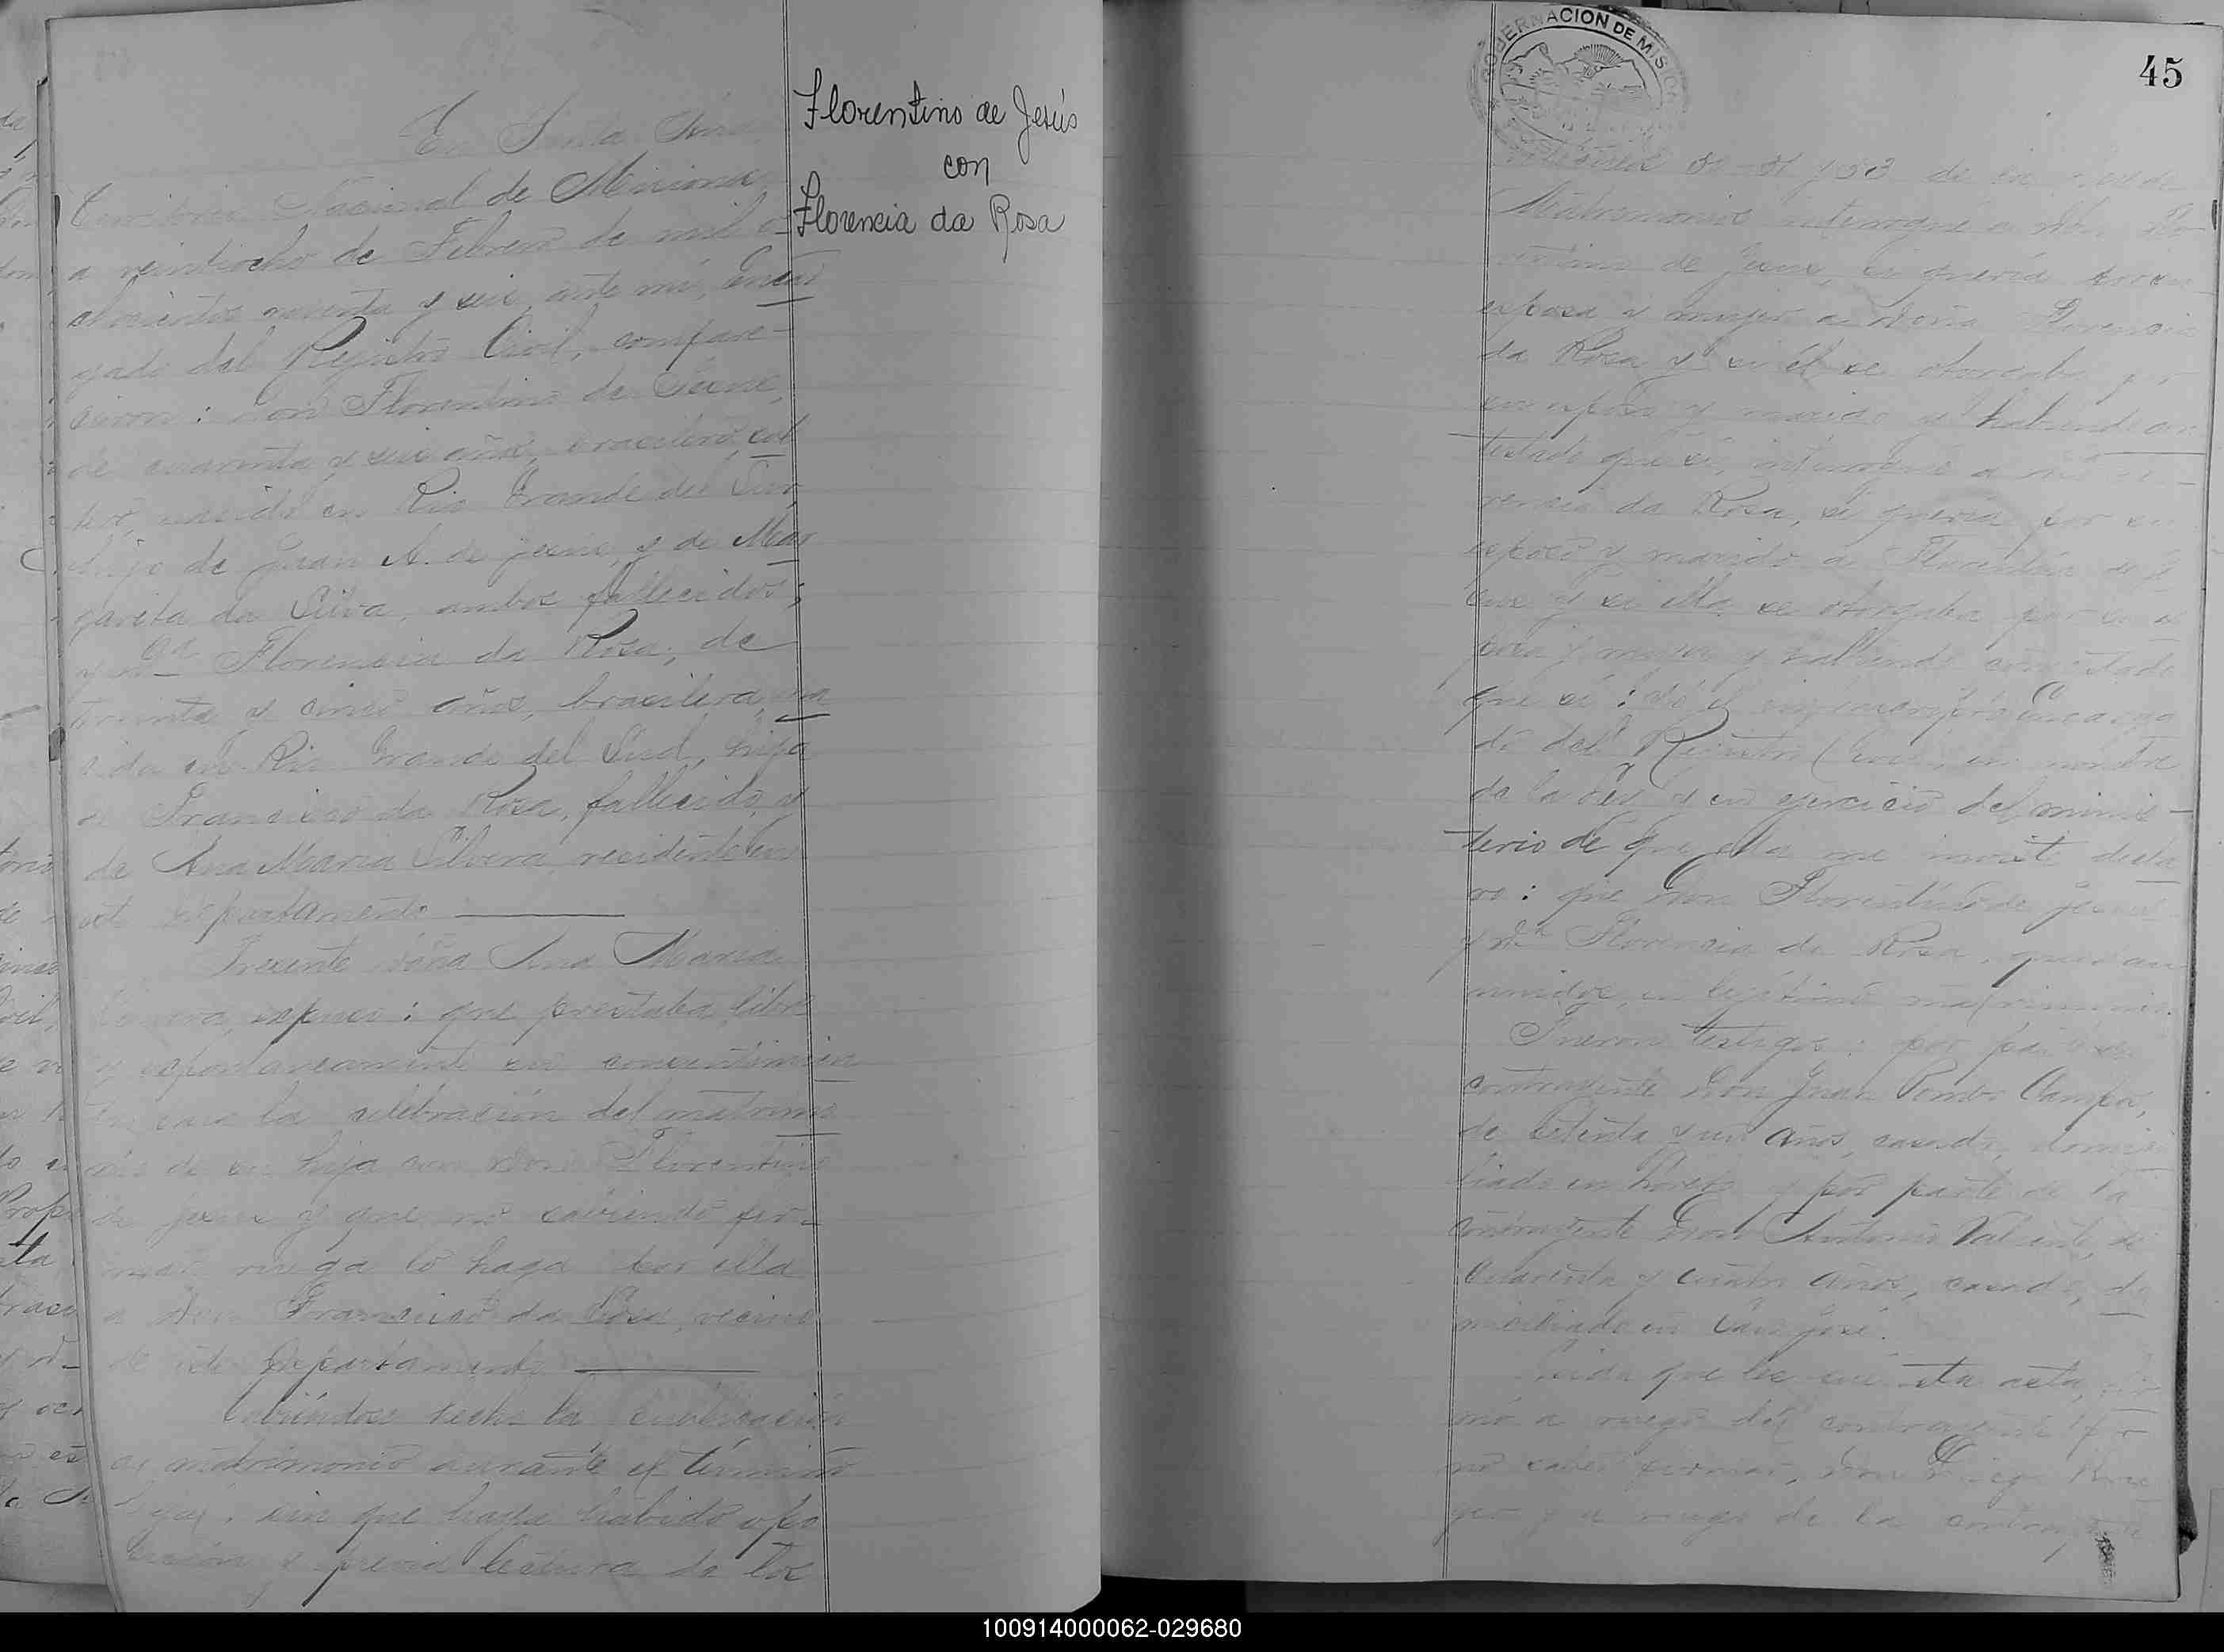 En Santa Ana
Territorio Nacional de Misiones,
a veintiocho de Febrero de mil o-
chocientos noventa y seis, ante mí, Encar
gado del Registro Civil, compare-
cieron: Don Florentino de Jesus,
de cuarenta y seis años, brasilero, sol
tero, nacido en Rio Grande del Sur,
hijo de Juan A. de Jesus, y de Mar
garita da Silva, ambos fallecidos;
y Da Florencia da Rosa, de
treinta y cinco años, brasilera, na
cida en Rio Grande del Sud, hija
de Francisco da Rosa, fallecido, y
de Ana Maria Silvera, residente en
este departamento
Presente doña Ana Maria
Silvera, expuso: que prestaba libre
y espontaneamente su consentimien
to para la celebración del matrimo
nio de su hija con Don Florentino
de Jesus y que no sabiendo fir-
mar ruega lo haga por ella
a Don Francisco da Rosa, vecino
de este Departamento
Habiéndose hecho la publicación
de matrimonio durante el término
legal, sin que haya habido opo
sición y previa lectura de los
Florentino de Jesús
con
Florencia da Rosa
GOBERNACION DE MISIONES
45
y 53 de la Ley de
Matrimonio interrogué a Don Flo
rentino de Jesus, si queria por su
esposa y mujer a doña Florencia
da Rosa y si él se otorgaba por
su esposo y marido y habiendo con
testado que sí, interrogué a Da Flo-
rencia da Rosa, si queria por su
esposo y marido a Florentino de Je
sus y si ella se otorgaba por su es
posa y mujer y habiendo contestado
que sí: Yó el infrascripto Encarga
do del Registro Civil, en nombre
de la Ley y en ejercicio del minis-
terio de que ella me inviste decla
ro: que Don Florentino de Jesus
y Da Florencia da Rosa, quedan
unidos en legítimo matrimonio.
Fueron testigos: por parte del
contrayente Don Juan Pombo Campo,
de setenta y un años, casado, domici
liado en y por parte de la
contrayente Don Antonio Valiente, de
cuarenta y cuatro años, casado, do
miciliado en San José.
Leida que les fué esta acta, fir
mó a ruego del contrayente por
no saber firmar, Don
y a ruego de la contrayente
100914000062-029680